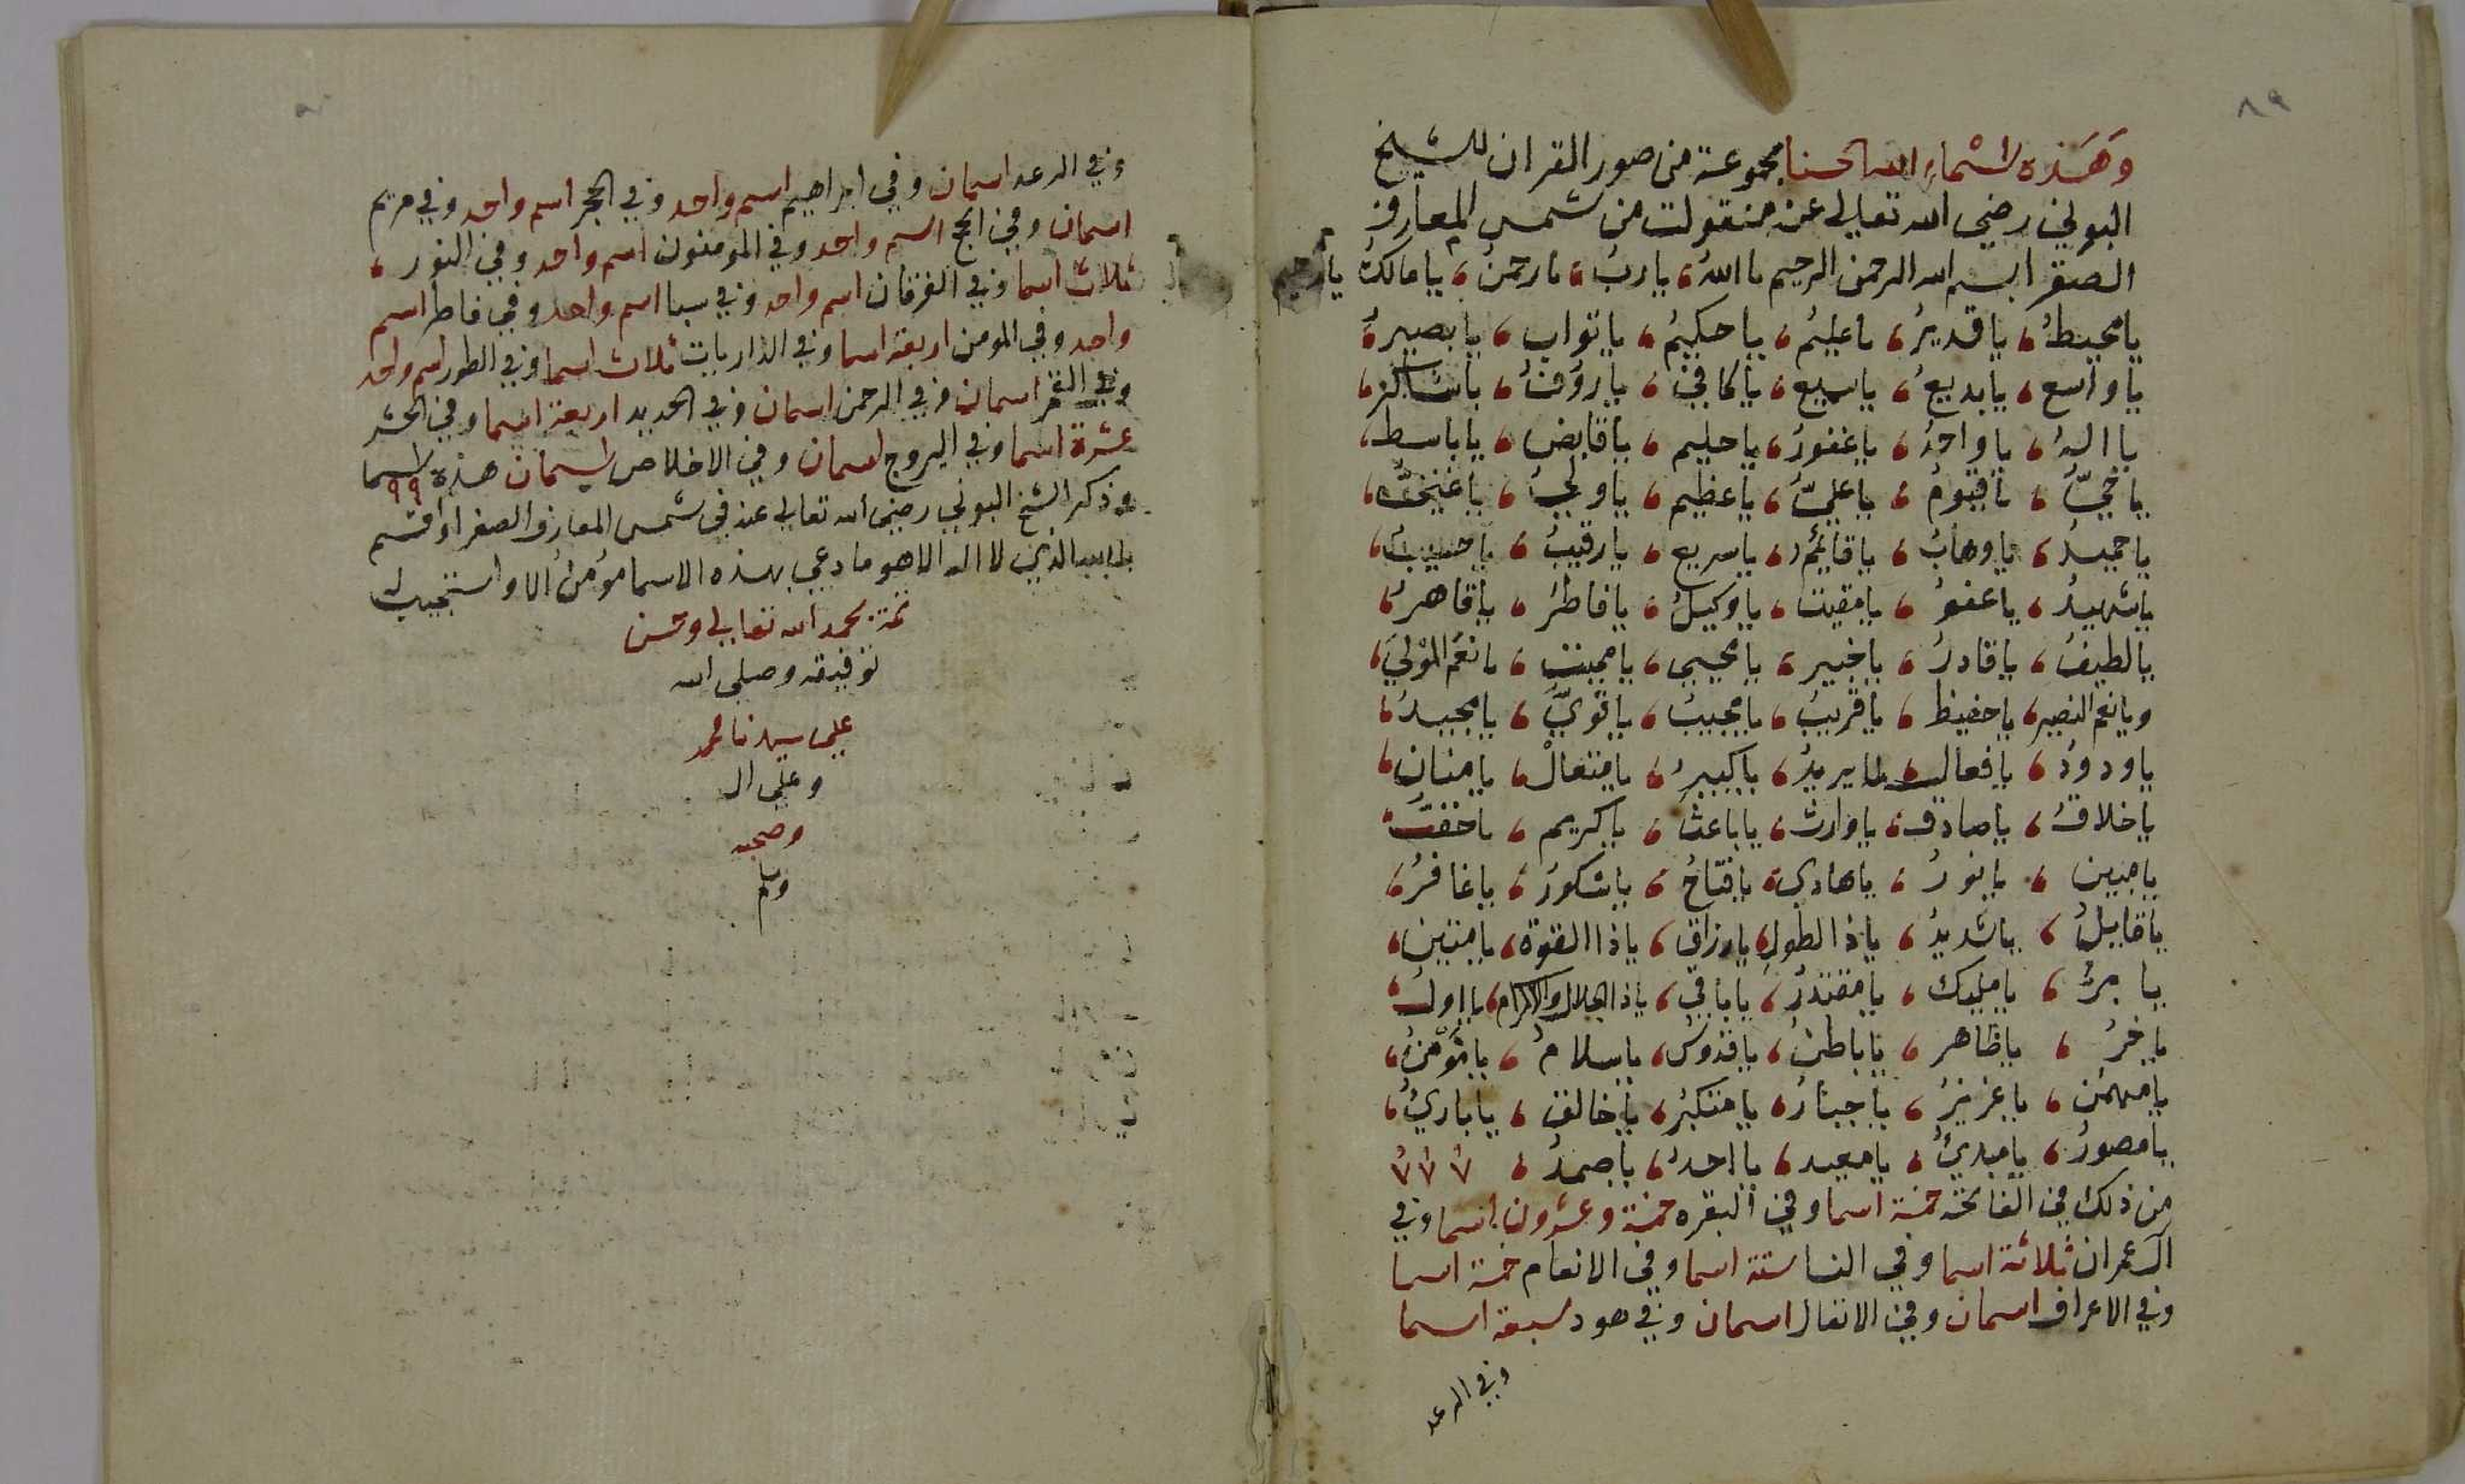 ٨٩
وهذه اسماء الله الحسنا مجموعة من صور القران للشيخ
البوني رضي الله تعالى عنه منقولت من شمس المعارف
الصغرا بسم الله الرحمن الرحيم يا الله، يا رب، يا رحمن، يا مالك يا رحيم
يا محيط، يا قدير، يا عليم، يا حكيم، يا تواب، يا بصير،
يا واسع، يا بديع، يا سميع، يا كافي، يا روف، يا شاكر،
يا اله، يا واحد، يا غفور، يا حليم، يا قابض، يا باسط،
يا حي، يا قيوم، يا علي، يا عظيم، يا ولي، يا غني،
يا حميد، يا وهاب، يا قائم، يا سريع، يا رقيب، يا حسيب،
يا شهيد، يا عفو، يا مقيت، يا وكيل، يا فاطر، يا قاهر،
يا لطيف، يا قادر، يا خبير، يا محيي، يا مميت، يا نعم المولى،
ويا نعم النصير، يا حفيظ، يا قريب، يا مجيب، يا قوي، يا مجيد،
يا ودود، يا فعال لما يريد، يا كبير، يا متعال، يا منان،
يا خلاق، يا صادق، يا وارث، يا باعث، يا كريم، يا حق،
يا مبين، يا نور، يا هادي، يا فتاح، يا شكور، يا غافر،
يا قابل، يا شديد، يا ذا الطول، يا رزاق، يا ذا القوة، يا متين،
يا بر، يا مليك، يا مقتدر، يا باقي، يا ذا الجلال والاكرام، يا اول،
ياخر، يا ظاهر، يا باطن، يا قدوس، يا سلام، يا مؤمن،
يا مهمن، يا عزيز، يا جبار، يا متكبر، يا خالق، يا باري،
يا مصور، يا مبدئ، يا معيد، يا احد، يا صمد،
من ذلك في الفاتحه خمسة اسما وفي البقره خمسة وعشرون اسما وفي
ال عمران ثلاثة اسما وفي النسا ستة اسما وفي الانعام خمسة اسما
وفي الاعراف اسمان وفي الانفال اسمان وفي هود سبعة اسما
وفي الرعد
وفي الرعد اسمان وفي ابراهيم اسم واحد وفي الحجر اسم واحد وفي مريم
اسمان وفي الحج اسم واحد وفي المومنون اسم واحد وفي النور،
ثلاث اسما وفي الفرقان اسم واحد وفي سبا اسم واحد وفي فاطر اسم
واحد وفي المومن اربعة اسما وفي الذاريات ثلاث اسما وفي الطور اسم واحد
وفي القمر اسمان وفي الرحمن اسمان وفي الحديد اربعة اسما وفي الحشر
عشرة اسما وفي البروج اسمان وفي الاخلاص اسمان هذه ٩٩ اسما
وذكر الشيخ البوني رضي الله تعالى عنه في شمس المعارف الصغرا واقسم
بالله الذي لا اله الا هو ما دعي بهذه الاسما مؤمن الا واستجيب له
تمة بحمد الله تعالى وحسن
توفيقه وصلى الله
على سيدنا محمد
وعلى ال
وصحبه
وسلم